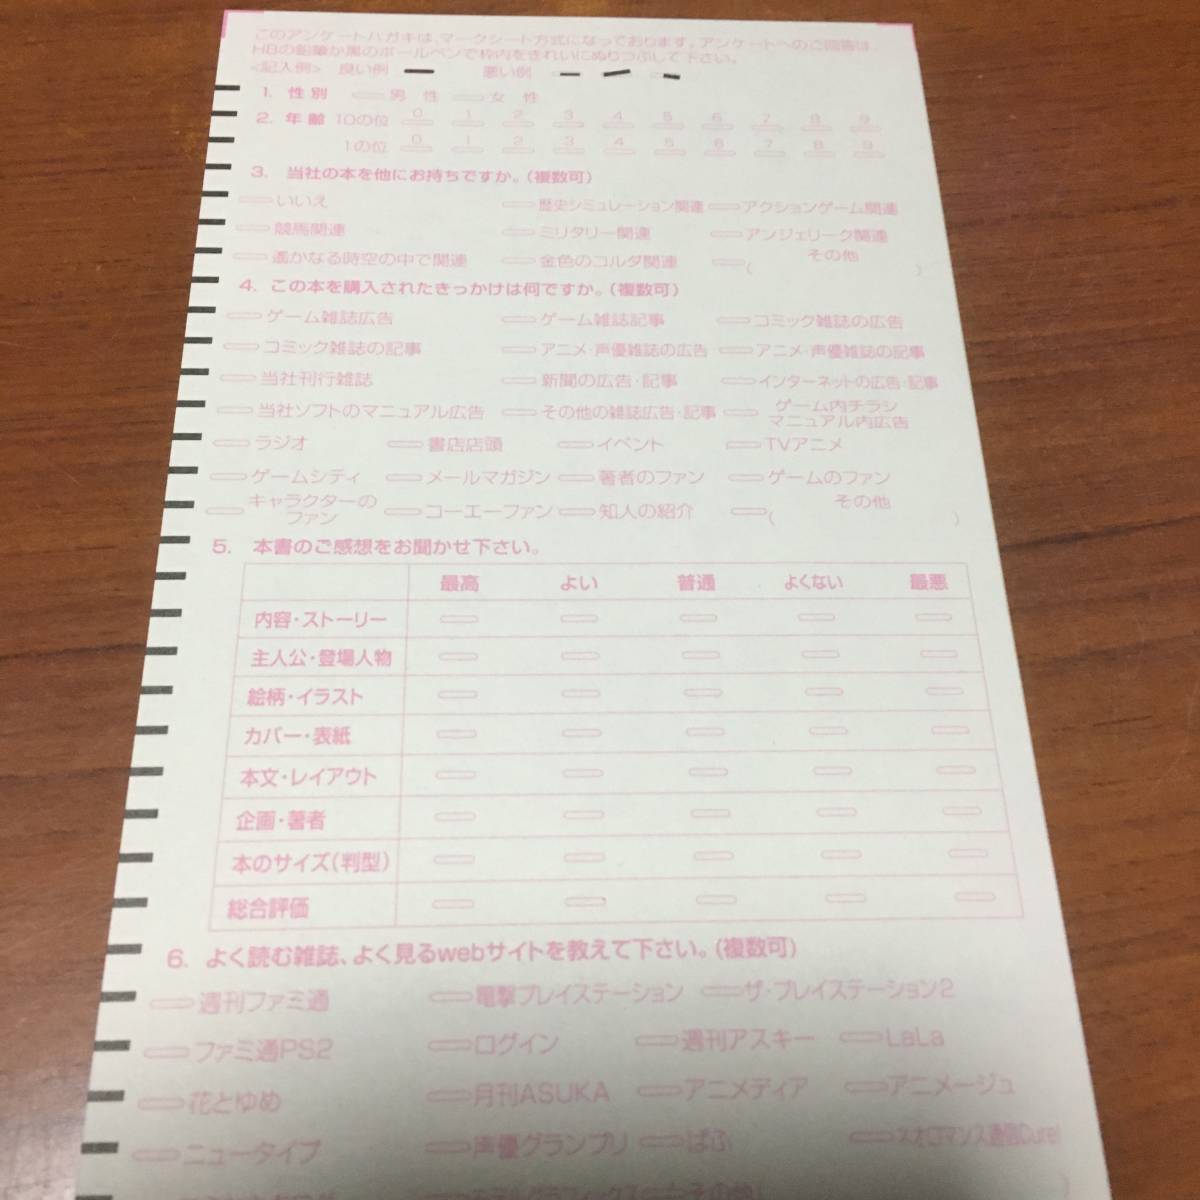 このアンケートハガキは、マークシート方式になっております。アンケートへのご回答は、
HBの鉛筆か黒のボールペンで枠内をきれいにぬりつぶして下さい。
<記入例> 良い例 悪い例
1. 性別 男 性 女 性
2. 年齢 10の位 0 1 2 3 4 5 6 7 8 9
1の位 0 1 2 3 4 5 6 7 8 9
3. 当社の本を他にお持ちですか。(複数可)
いいえ 歴史シミュレーション関連 アクションゲーム関連
競馬関連 ミリタリー関連 アンジェリーク関連
遙かなる時空の中で関連 金色のコルダ関連 その他
( )
4. この本を購入されたきっかけは何ですか。(複数可)
ゲーム雑誌広告 ゲーム雑誌記事 コミック雑誌の広告
コミック雑誌の記事 アニメ・声優雑誌の広告 アニメ・声優雑誌の記事
当社刊行雑誌 新聞の広告・記事 インターネットの広告・記事
当社ソフトのマニュアル広告 その他の雑誌広告・記事 ゲーム内チラシ
マニュアル内広告
ラジオ 書店店頭 イベント TVアニメ
ゲームシティ メールマガジン 著者のファン ゲームのファン
キャラクターの
ファン コーエーファン 知人の紹介 その他
( )
5. 本書のご感想をお聞かせ下さい。
最高 よい 普通 よくない 最悪
内容・ストーリー
主人公・登場人物
絵柄・イラスト
カバー・表紙
本文・レイアウト
企画・著者
本のサイズ(判型)
総合評価
6. よく読む雑誌、よく見るwebサイトを教えて下さい。(複数可)
週刊ファミ通 電撃プレイステーション ザ・プレイステーション2
ファミ通PS2 ログイン 週刊アスキー LaLa
花とゆめ 月刊ASUKA アニメディア アニメージュ
ニュータイプ 声優グランプリ ぱふ ネオロマンス通信Cure!
その他(